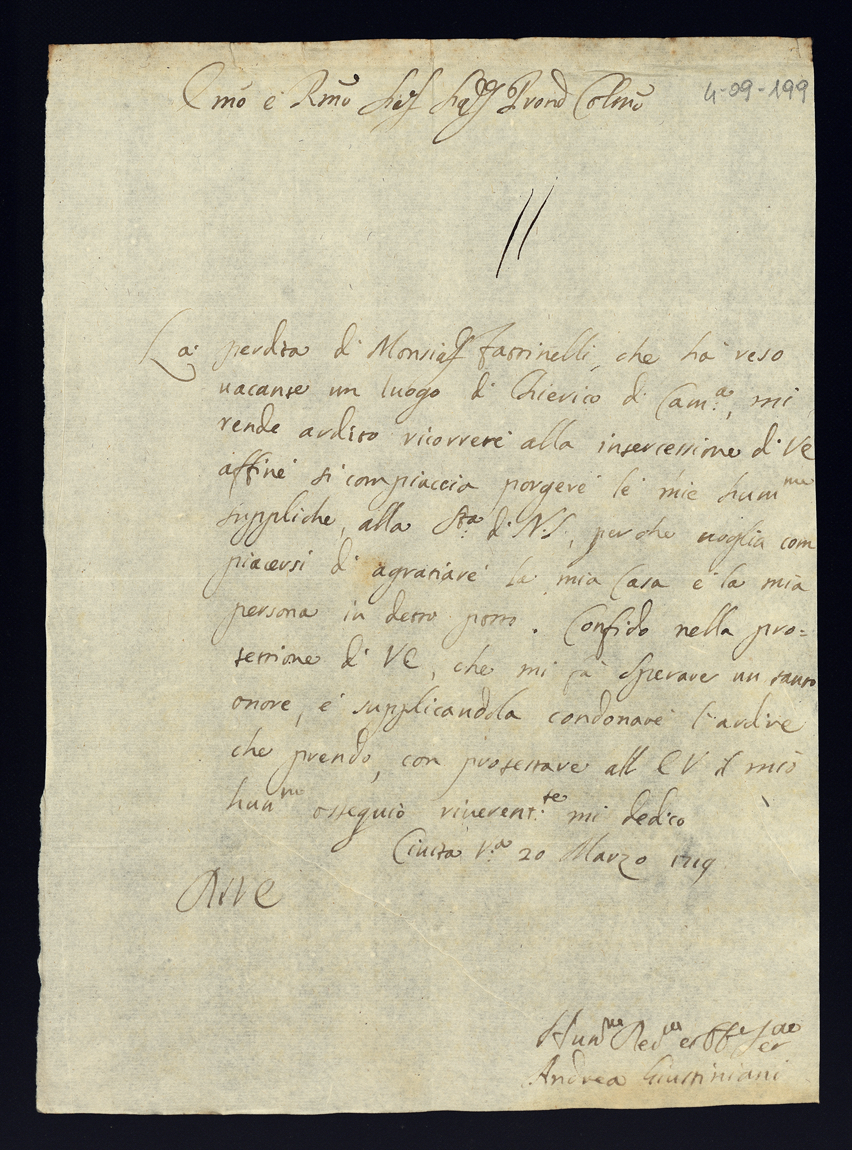 Emo e Rmo Sig.r Sig.r Pron Colmo
4-09-199
La perdita di Monsig.r Farsinelli, che ha reso
uacante un luogo di Chierico di Cam.a, mi
rende ardito ricorrere alla intercessione di VE
affine si compiaccia porgere le mie hum.me
suppliche, alla Sta di N.S., perche uoglia com
piacersi di agratiare la mia Casa e la mia
persona in detto posto. Confido nella pro=
tettione di VE, che mi fà sperare un tanto
onore, e supplicandola condonare l'ardire
che prendo, con protestare all EV il mio
hum.mo ossequio riuerent.te mi dedico
Ciuita V.a 20 Marzo 1719
Hum.mo Deu.mo et
Andrea Giustiniani